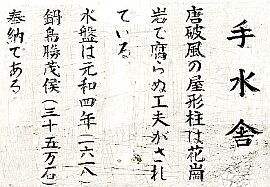 手水舎
唐破風の屋形柱は花崗
岩で腐らぬ工夫がされ
ている
水盤は元和四年(一六一八)
鍋島勝茂侯(三十五万石)
奉納である